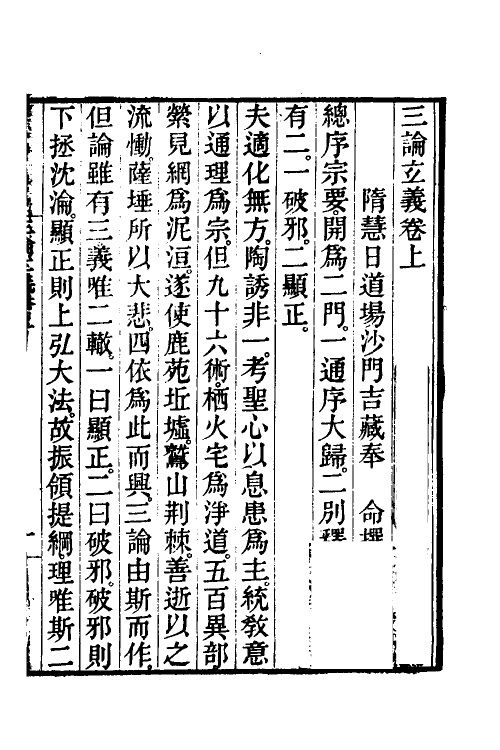 三論立義卷上
隋慧日道場沙門吉藏奉　命撰
總序宗要。開爲二門。一通序大歸。二別釋
有二。一破邪。二顯正。
夫適化無方。陶誘非一。考聖心以息患爲主。統教意
以通理爲宗。但九十六術。栖火宅爲淨道。五百異部。
縈見網爲泥洹。遂使鹿苑坵墟。鷲山荆棘。善逝以之
流慟。薩埵所以大悲。四依爲此而興。三論由斯而作。
但論雖有三義唯二轍。一曰顯正。二曰破邪。破邪則
下拯沈淪。顯正則上弘大法。故振領提綱。理唯斯二